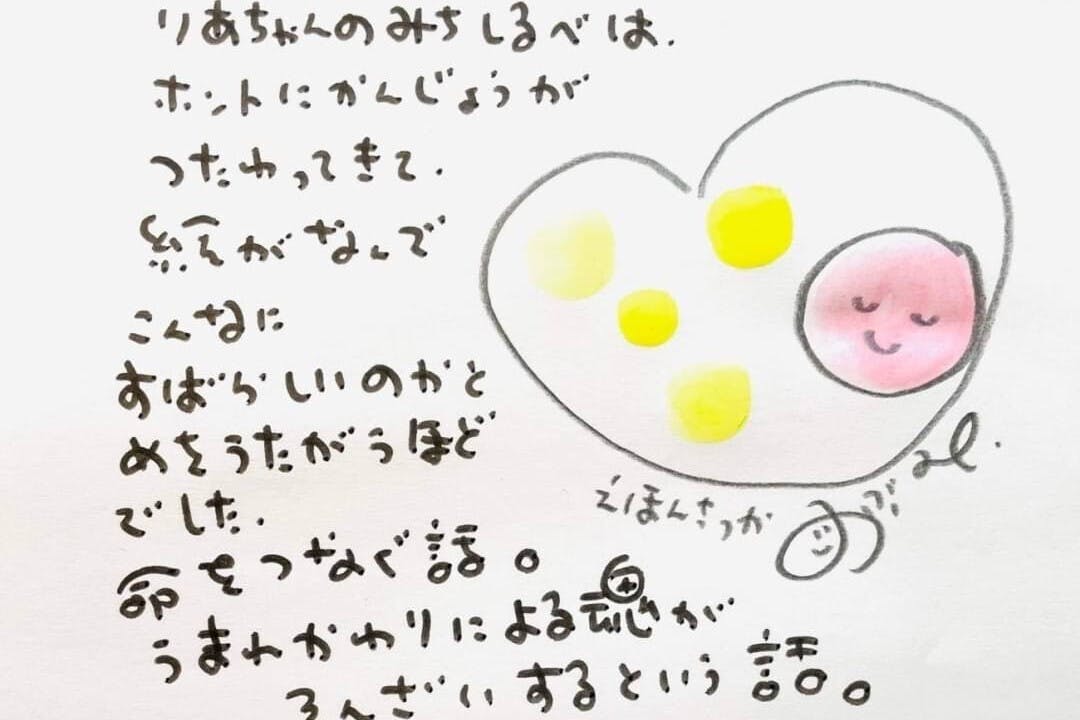 りあちゃんのみちしるべは.
ホントにかんじょうが
つたわってきて.
絵がなんで
こんなに
すばらしいのかと
めをうたがうほど
でした.
命をつなぐ話。
うまれかわりによる魂が
そんざいするという話。
えほんさっか のぶ